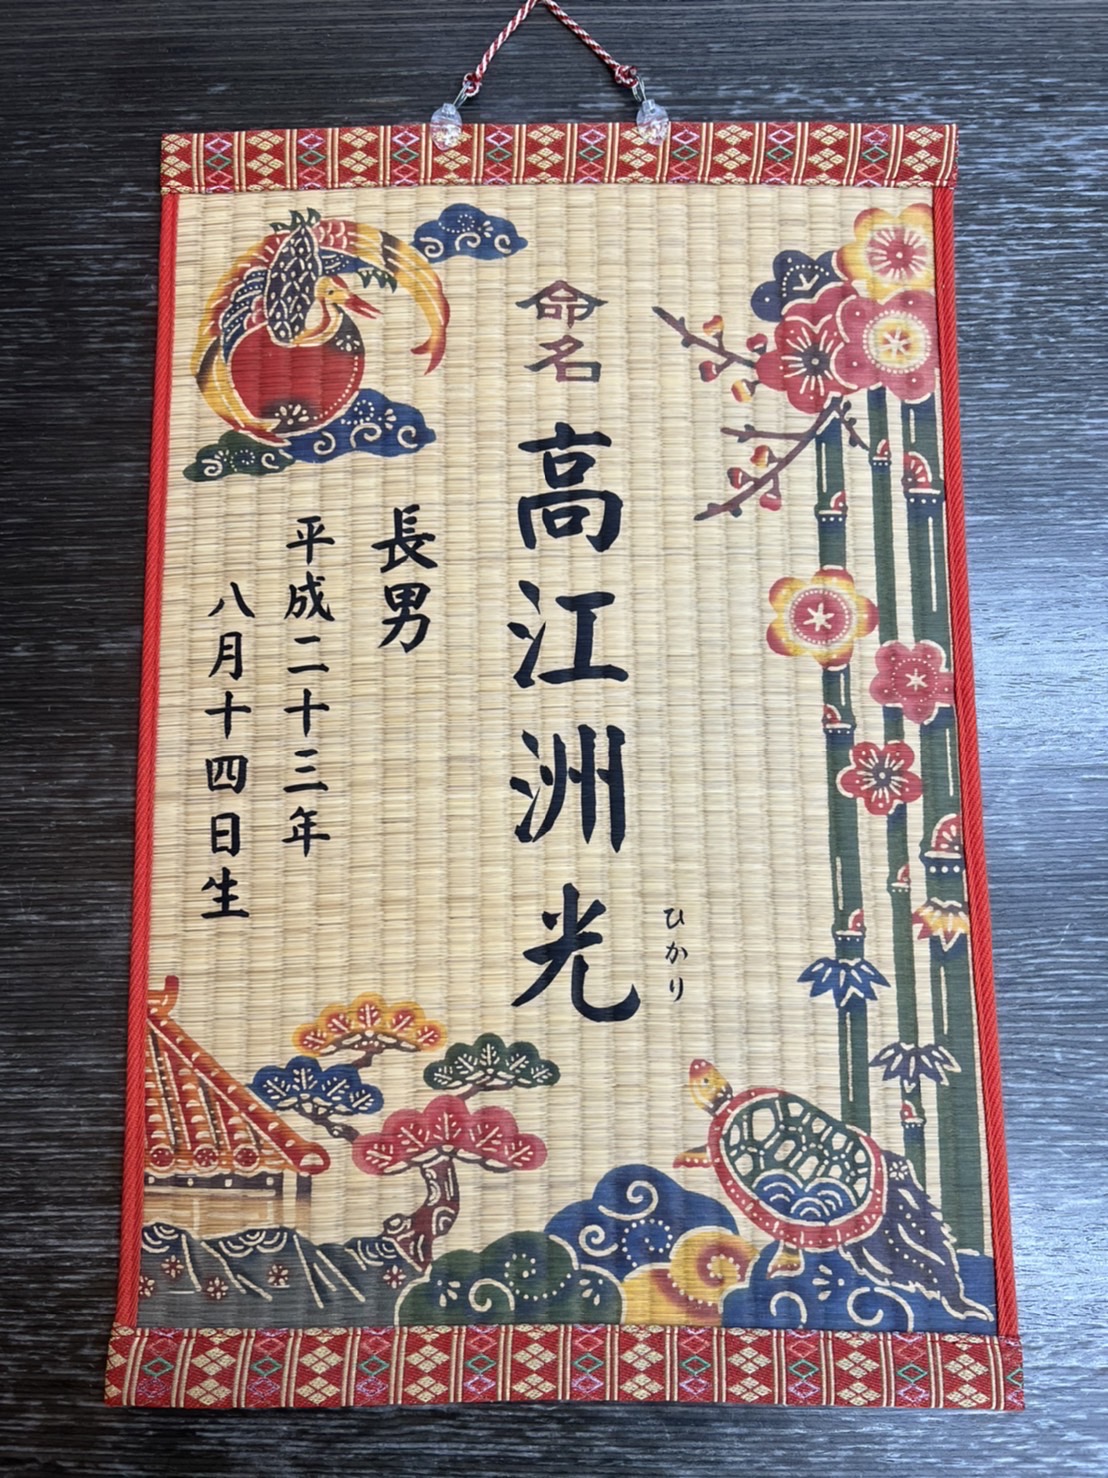 命名
高江洲光
ひかり
長男
平成二十三年
八月十四日生